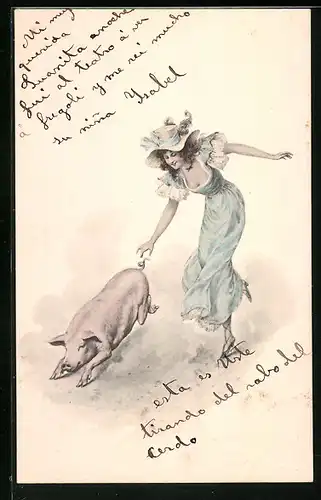 Mi muy
querida
Juanita anoche
fui al teatro á ver
a fregoli y me rei mucho
su niña Isabel
esta es Uste
tirando del rabo del
cerdo